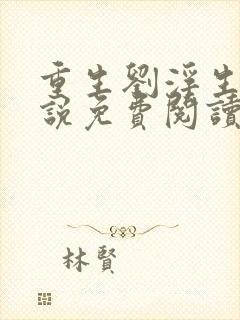 重生劉淫生
說免費閱讀
林賢